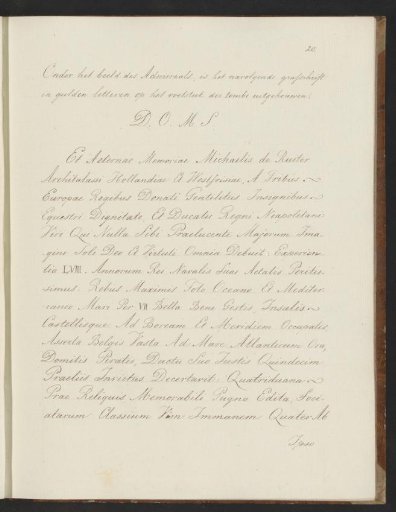 20.
Onder het beeld des Admiraals, is het navolgende grafschrift
in gulden letteren op het voetstuk der tombe uitgehouwen:
D. O. M. S.
Et Aeternae Memoriae Michaelis de Ruiter
Architalassi Hollandiae Et Westfrisiae, A Tribus
Europae Regibus Donati Gentilitiis Insignibus
Equestri Dignitate, Et Ducatus Regni Neapolitani
Viri Qui Nulla Sibi Praelucente Majorum Ima
gine Soli Deo Et Virtuti Omnia Debuit, Experien
tia LVIII Annorum Rei Navalis Suae Aetatis Peritis
simus. Rebus Maximis Toto Oceano Et Mediter
raneo Mari Per VII Bella Bene Gestis, Insulis
Castellisque Ad Boream Et Meridiem Occupatis
Asserta Belgis Vasta Ad Mare Atlanticum Ora,
Domitis Piratis, Ductu Suo Justis Quindecim
Praeliis Invictus Decertavit. Quatriduana
Prae Reliquis Memorabili Pugna Edita, Soci
atarum Classium Vim Immanem Quater Ab
Ipso